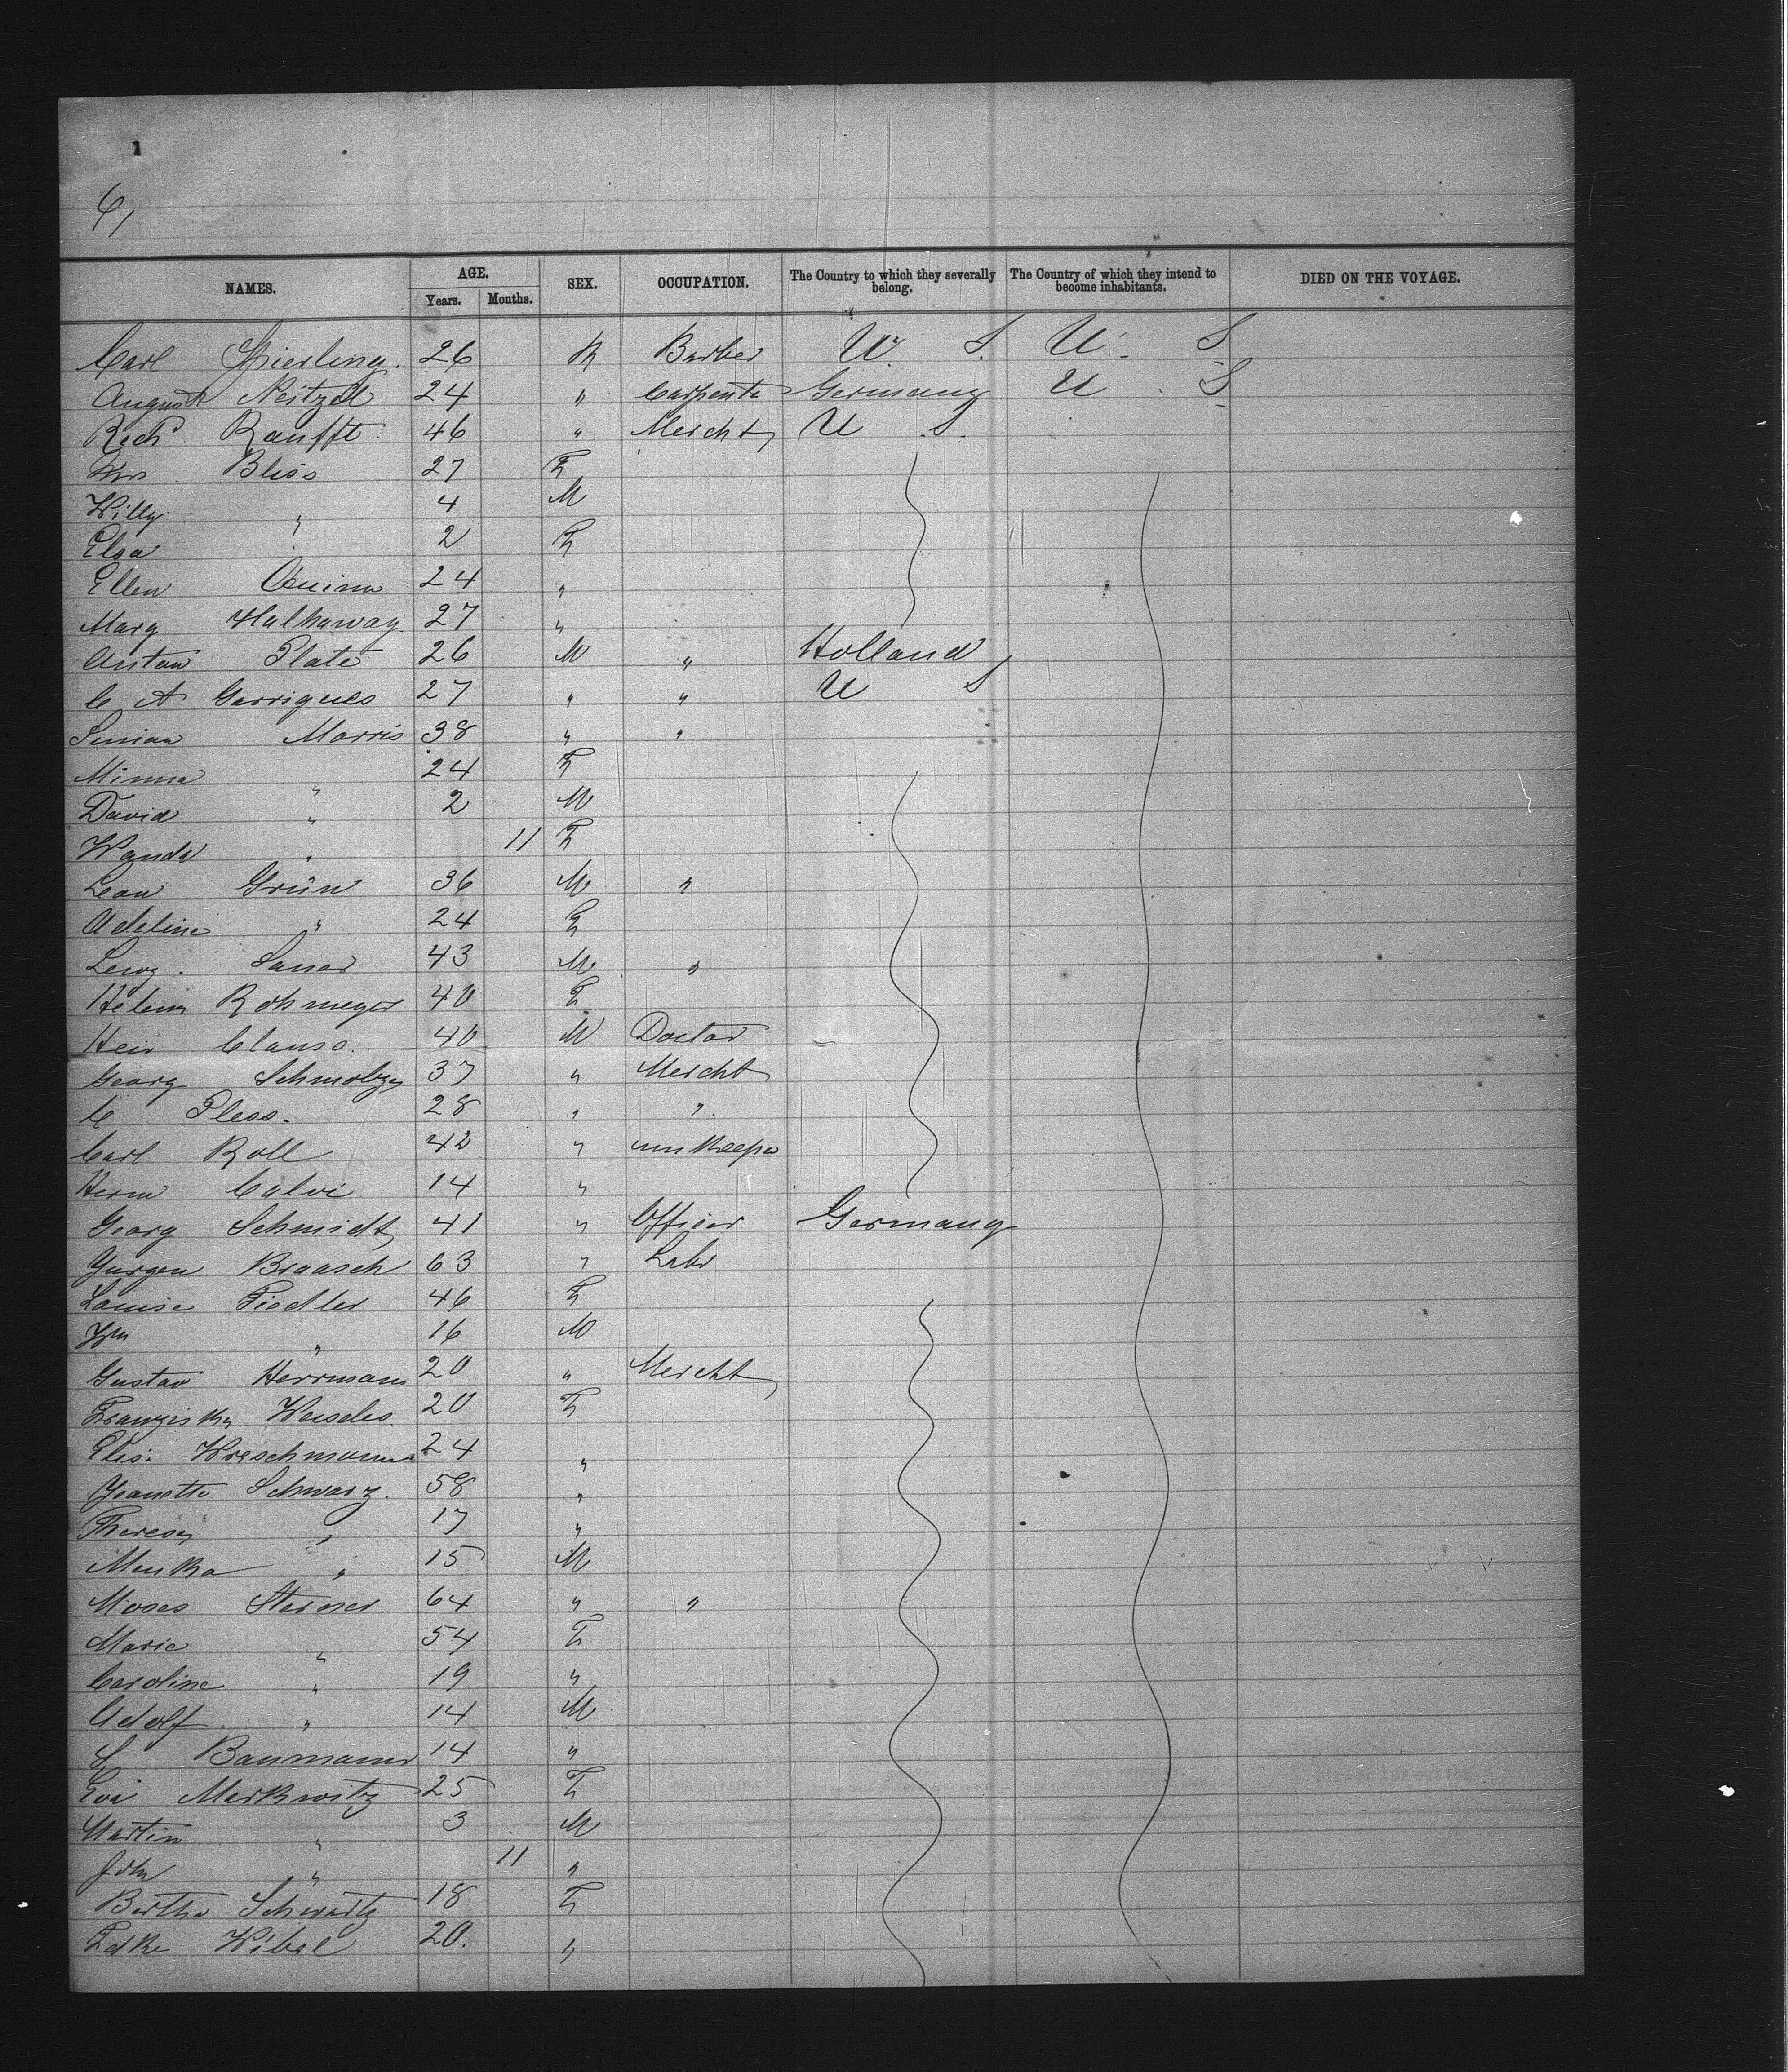 1
6,
NAMES. AGE. Years. Months. SEX. OCCUPATION. The Country to which they severally belong. The Country of which they intend to become inhabitants. DIED ON THE VOYAGE.
Carl Spierling. 26 M Barber U. S. U. S
August Neitzel 24 " Carpenta Germany U. S
Rich Raufft. 46 " Mercht U. S.
Mrs Bliss 27 F
Willy " 4 M
Elsa " 2 F
Ellen Quinn 24 "
Mary Hathaway 27 "
Anton Plate 26 M " Holland
C A Garrigues 27 " " U S
Simian Morris 38 " "
Minna " 24 F
David " 2 M
Wanda " 11 F
Leon Grün 36 M "
Adeline " 24 F
Levy. Sauer 43 M "
Helene Rohmeyer 40 F
Hein Clauss. 40 M Doctor
Georg 37 " Mercht
C Pless. 28 " ".
Carl Roll 42 " innkeepa
Herm Calvi 14 "
Georg Schmidt 41 " Officer Germany
Jurgen Braasch 63 " Labr
Louise Fiedler 46 F
Wm " 16 M
Gustav Herrmann 20 " Mercht
Franziska 20 F
Elis. 24 "
Jeanette Schwarz. 58 "
Therese " 17 "
" 15 M
Moses Sterner 64 " "
Marie " 54 F
Caroline " 19 "
Adolf " 14 M
Baumann 14 "
Eva Markwitz 25 F
Martin " 3 M
John " 11 "
Bertha Schwartz 18 F
20. "